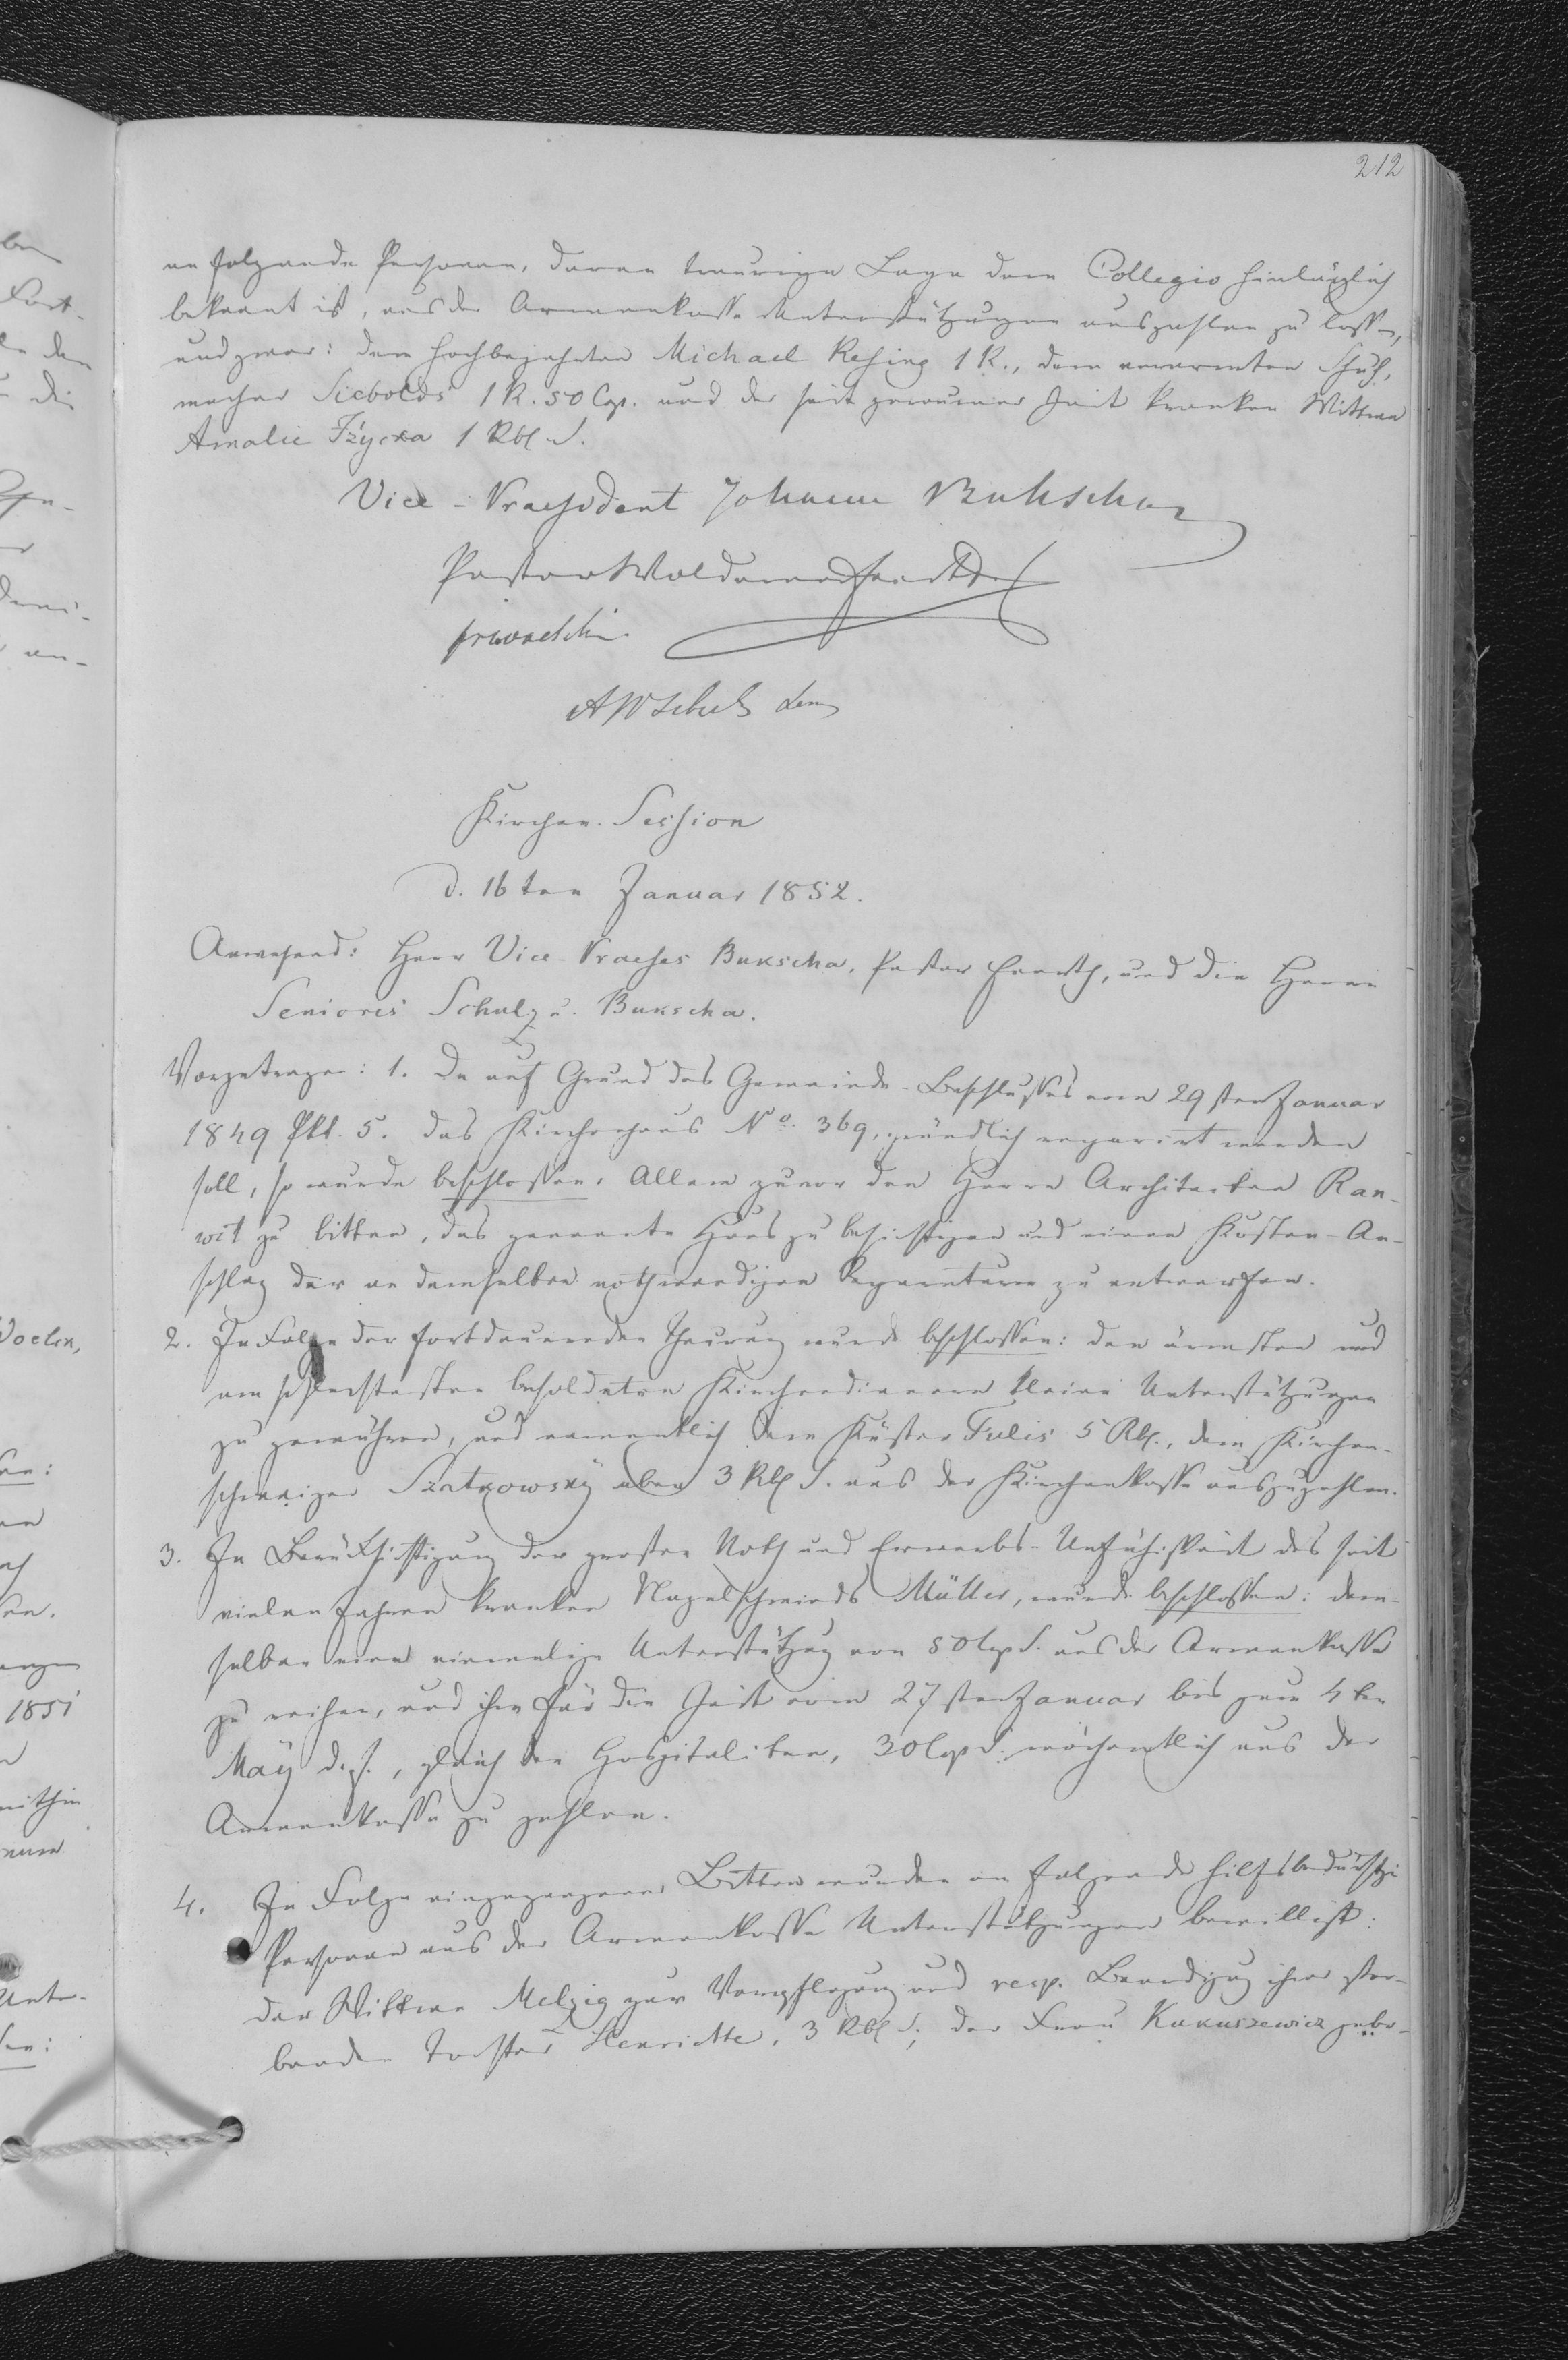 212
an folgende Personen, deren traurige Lage dem Collegio hinlänglich
bekannt ist, aus der Armenkasse Unterstützungen auszahlen zu lassen,
und zwar: dem hochbejahrten Michael Resing 1 R., dem verarmten Schuh,
macher Siebolds 1 R. 50 Cop. und der seit geraumer Zeit kranken Wittwe
Amalie Iżycka 1 Rbl S.
Vice-Praesident Johann Bukscha
Pastor Woldemar
A W Schulz Sen
Kirchen-Session
d. 16ten Januar 1852.
Anwesend: Herr Vice-Praeses Bukscha, Pastor und die Herrn
Seniores Schulz u. Bukscha.
Vorgetragen: 1. Da auf Grund des Gemeinde-Beschlusses vom 29sten Januar
1849 Pkt. 5. das Kirchenhaus No. 369, gründlich reparirt werden
soll, so wurde beschlossen: Allem zuvor den Herrn Architecten Ran-
wit zu bitten, das genannte Haus zu besichtigen und einen Kosten-An-
schlag der an demselben nothwendigen Reparaturen zu entwerfen.
2. In Folge der fortdauernden Theurung wurde beschlossen: den ärmsten und
am schlechtesten besoldeten Kirchendienern kleine Unterstützungen
zu gewähren, und namentlich dem Küster Tulis 5 Rbl., dem Kirchen-
schweizer Szatkowsky aber 3 Rbl S. aus der Kirchenkasse auszuzahlen.
3. In Berücksichtigung der grossen Noth und Erwerbs-Unfähigkeit des seit
vielen Jahren kranken Nagelschmieds Müller, wurde beschlossen: dem-
selben eine einmalige Unterstützung von 50 Cop S. aus der Armenkasse
zu reichen, und ihm für die Zeit vom 27sten Januar bis zum 4ten
May d. J., gleich den Hospitaliten, 30 Cop S. wöchentlich aus der
Armenkasse zu zahlen.
4. In Folge eingegangener Bitten wurden an folgende hilfsbedürftige
Personen aus der Armenkasse Unterstützungen bewilligt:
der Wittwe Melzig zur Verpflegung und resp. Beerdigung ihrer ster-
benden Tochter Henriette, 3 Rbl S; der Frau Kukuszewicz gebo-